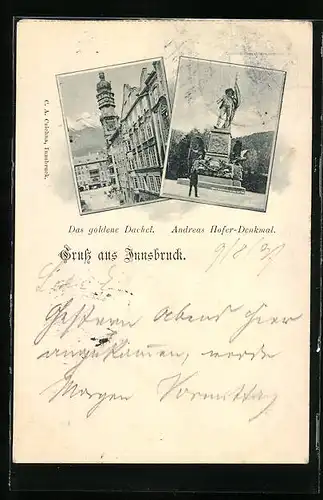 C. A. Czichna, Innsbruck.
Das goldene Dachel. Andreas Hofer-Denkmal.
Gruß aus Innsbruck.
9/8/97
Gestern Abend hier
angekommen, werde
Morgen Vormittag